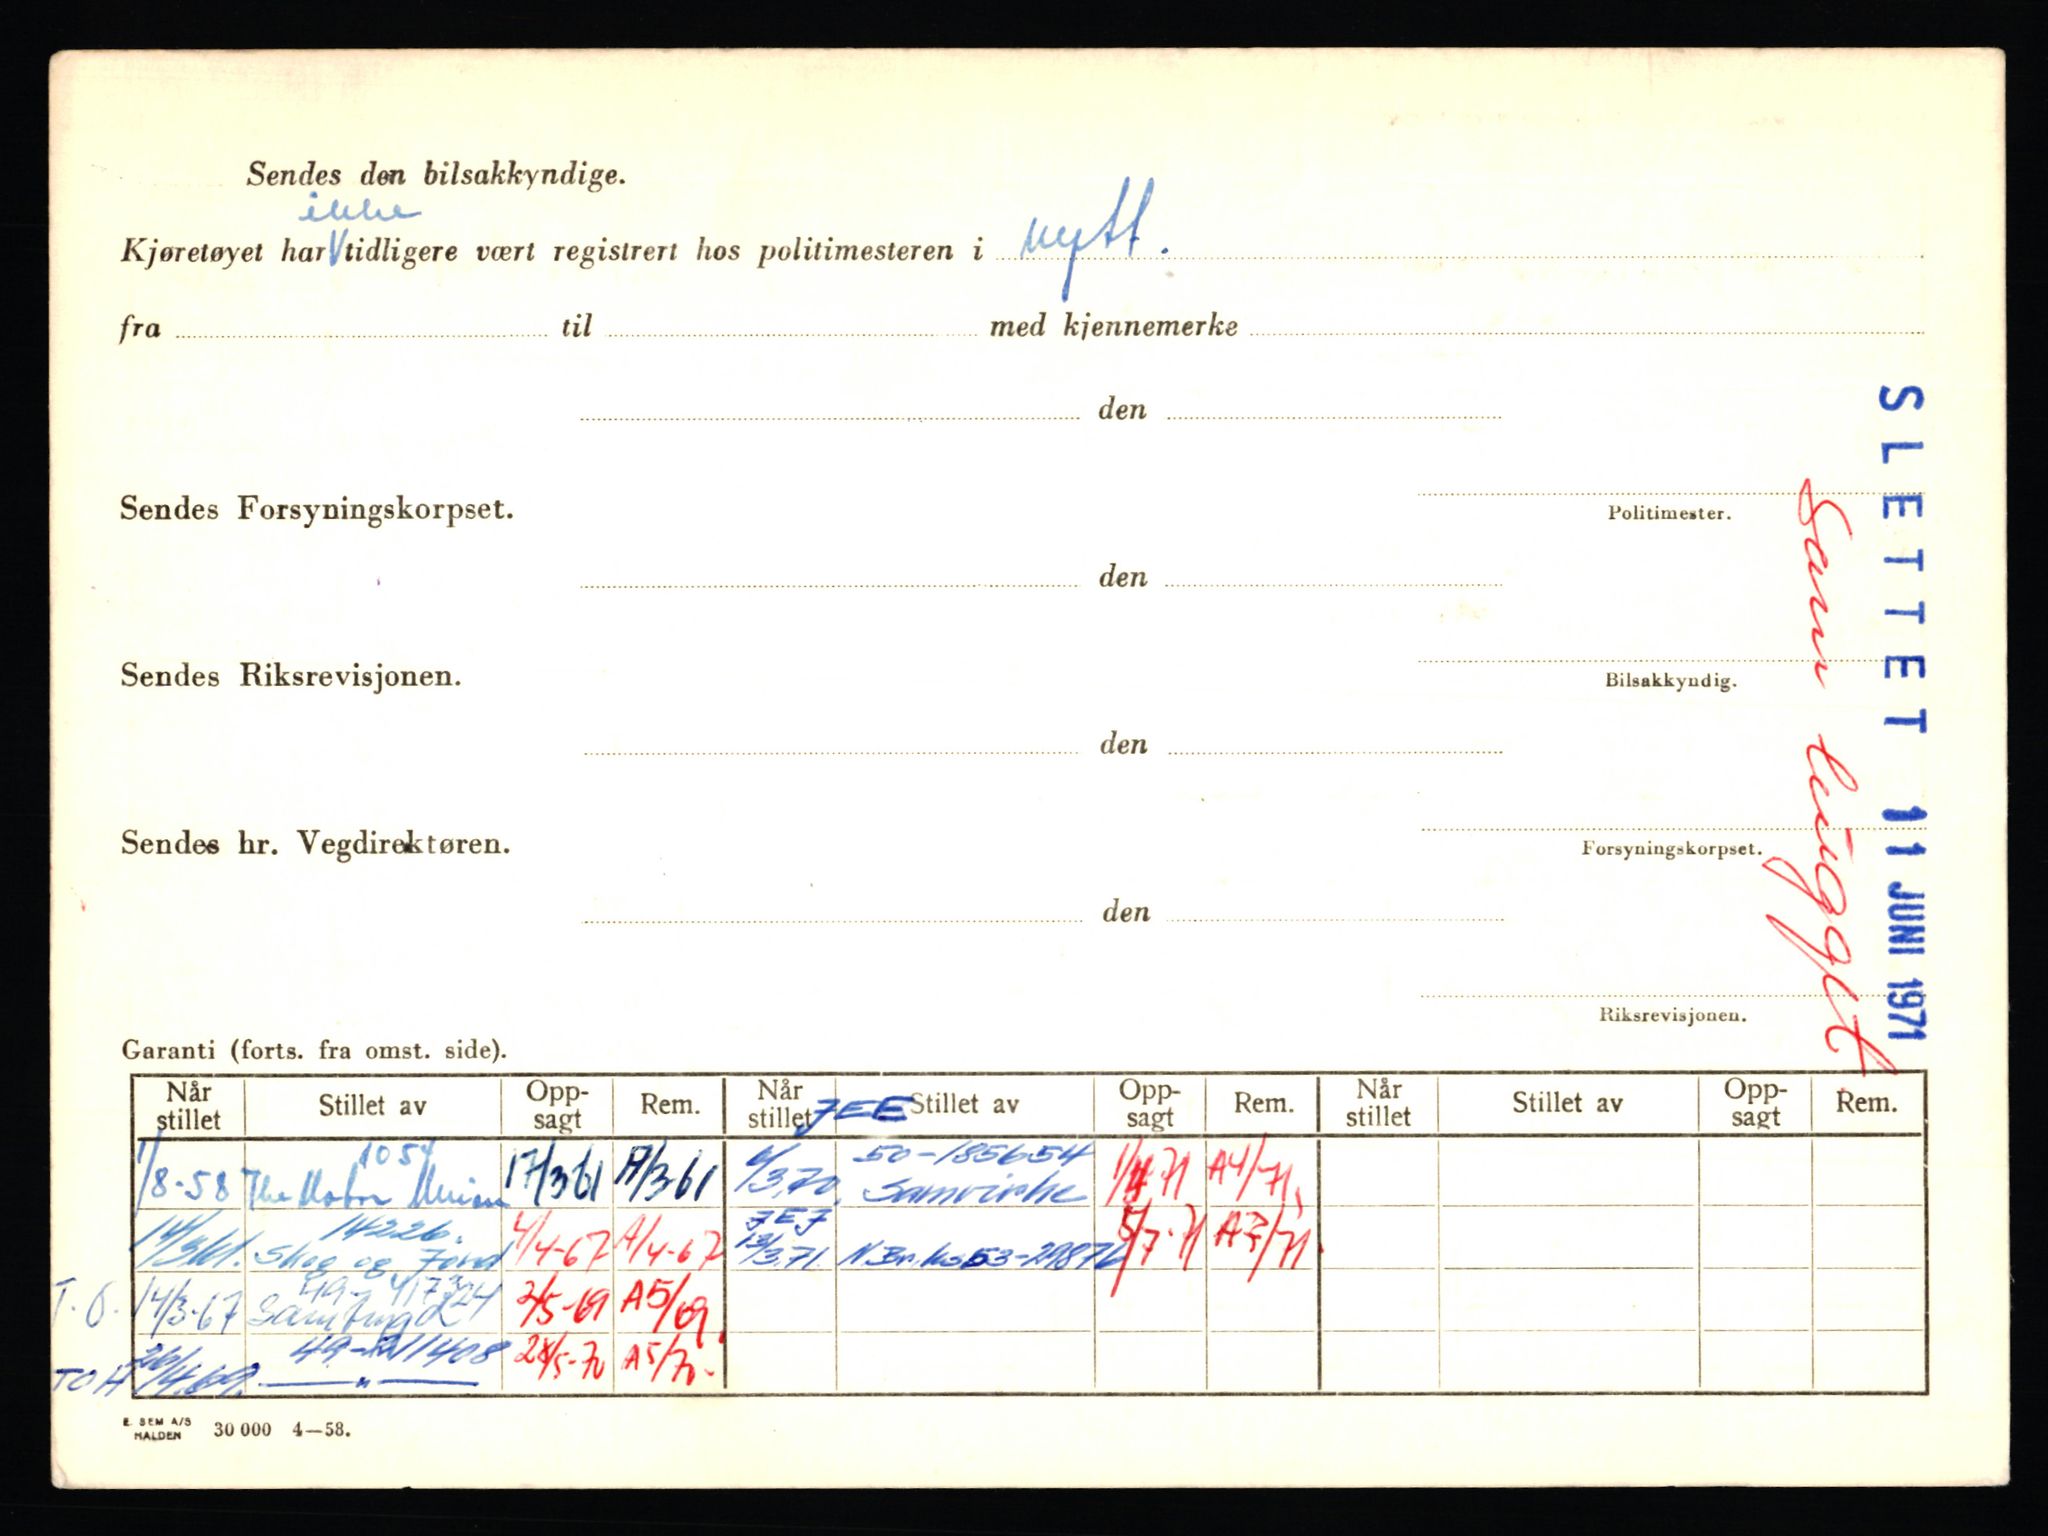 Sendes den bilsakkyndige.
ikke
Kjøretøyet har V tidligere vært registrert hos politimesteren i nytt.
fra til med kjennemerke
den
Politimester.
Sendes Forsyningskorpset.
den
Bilsakkyndig.
Sendes Riksrevisjonen.
den
Forsyningskorpset.
Sendes hr. Vegdirektøren.
den
Riksrevisjonen.
SLETTET 11 JUNI 1971
Garanti (forts. fra omst. side).
Når stillet Stillet av Opp-sagt Rem. Når stillet Stillet av Opp-sagt Rem. Når stillet Stillet av Opp-sagt Rem.
JEE
1054 50-185654
1/8-58 The Motor Union 17/3 61 A/3 61 6/3.70. Samvirke 1/4 71 A4/71.
14226. JEJ
14/3 61. Skog og Jord 4/4-67 A/4-67 13/3.71. 5/7-71
T.O. 14/3-67 2/5-69 A5/69.
TOH 26/4.69. —„— 28/5-70 A5/70.
E. SEM A/S
HALDEN 30 000 4—58.